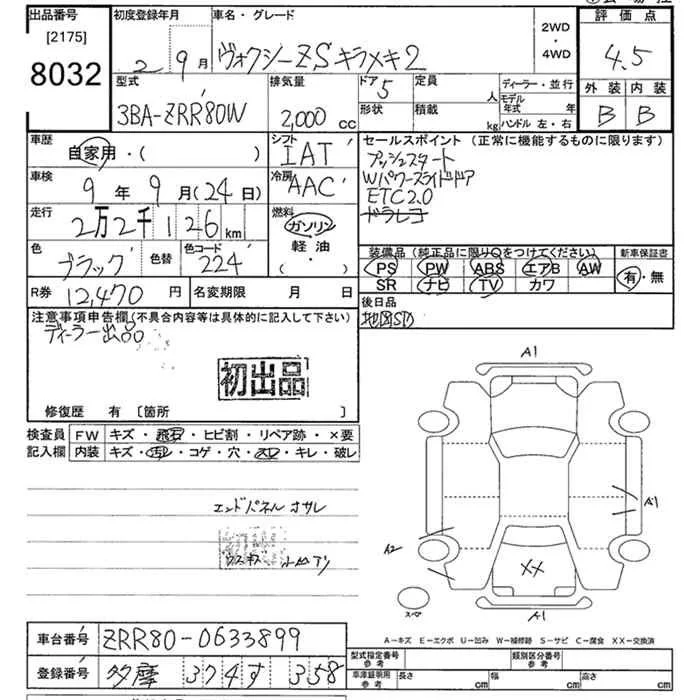 出品番号
[2175]
8032
初度登録年月
2 9月
車名・グレード
ヴォクシーZSキラメキ2
2WD
・
4WD
評価点
4.5
外装 内装
B B
型式
3BA-ZRR80W
排気量
2,000 cc
ドア 5
定員 人
形状
積載 kg
ディーラー・並行
モデル年式 年
ハンドル 左・右
車歴
自家用・( )
シフト
IAT
セールスポイント (正常に機能するものに限ります)
プッシュスタート
Wパワースライドドア
ETC2.0
ドラレコ
車検
9年9月(24日)
冷房
AAC
走行
2万2千126km
燃料
ガソリン
軽油
・( )
色
ブラック
色替
色コード
224
装備品(純正品に限り○をつけてください)
PS PW ABS エアB AW
SR ナビ TV カワ
新車保証書
有・無
R券 12,470円
名変期限 月 日
後日品
地図SD
注意事項申告欄(不具合内容等は具体的に記入して下さい)
ディーラー出品
初出品
修復歴 有 [箇所 ]
検査員 FW キズ・飛石・ヒビ割・リペア跡・×要
記入欄 内装 キズ・汚レ・コゲ・穴・スレ・キレ・破レ
エンドパネル オサレ
A1
A1
A2
XX
スペア
A1
A−キズ E−エクボ U−凹み W−補修跡 S−サビ C−腐食 XX−交換済
車台番号 ZRR80-0633899
型式指定番号
参考
類別区分番号
参考
登録番号 多摩 374す 358
車庫証明用
参考
長さ cm
幅 cm
高さ cm